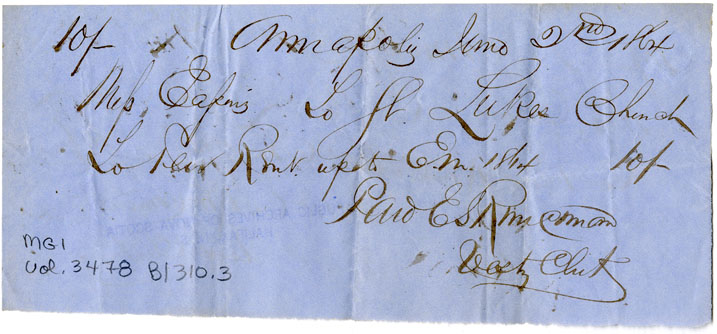 10/- Annapolis June 2nd 1864
Miss Eakins To St. Lukes Church
To Pew Rent up to E 1864 10/-
Paid
Vestry Clerk
PUBLIC ARCHIVES OF NOVA SCOTIA
HALIFAX
MG1
Vol. 3478 B/310.3